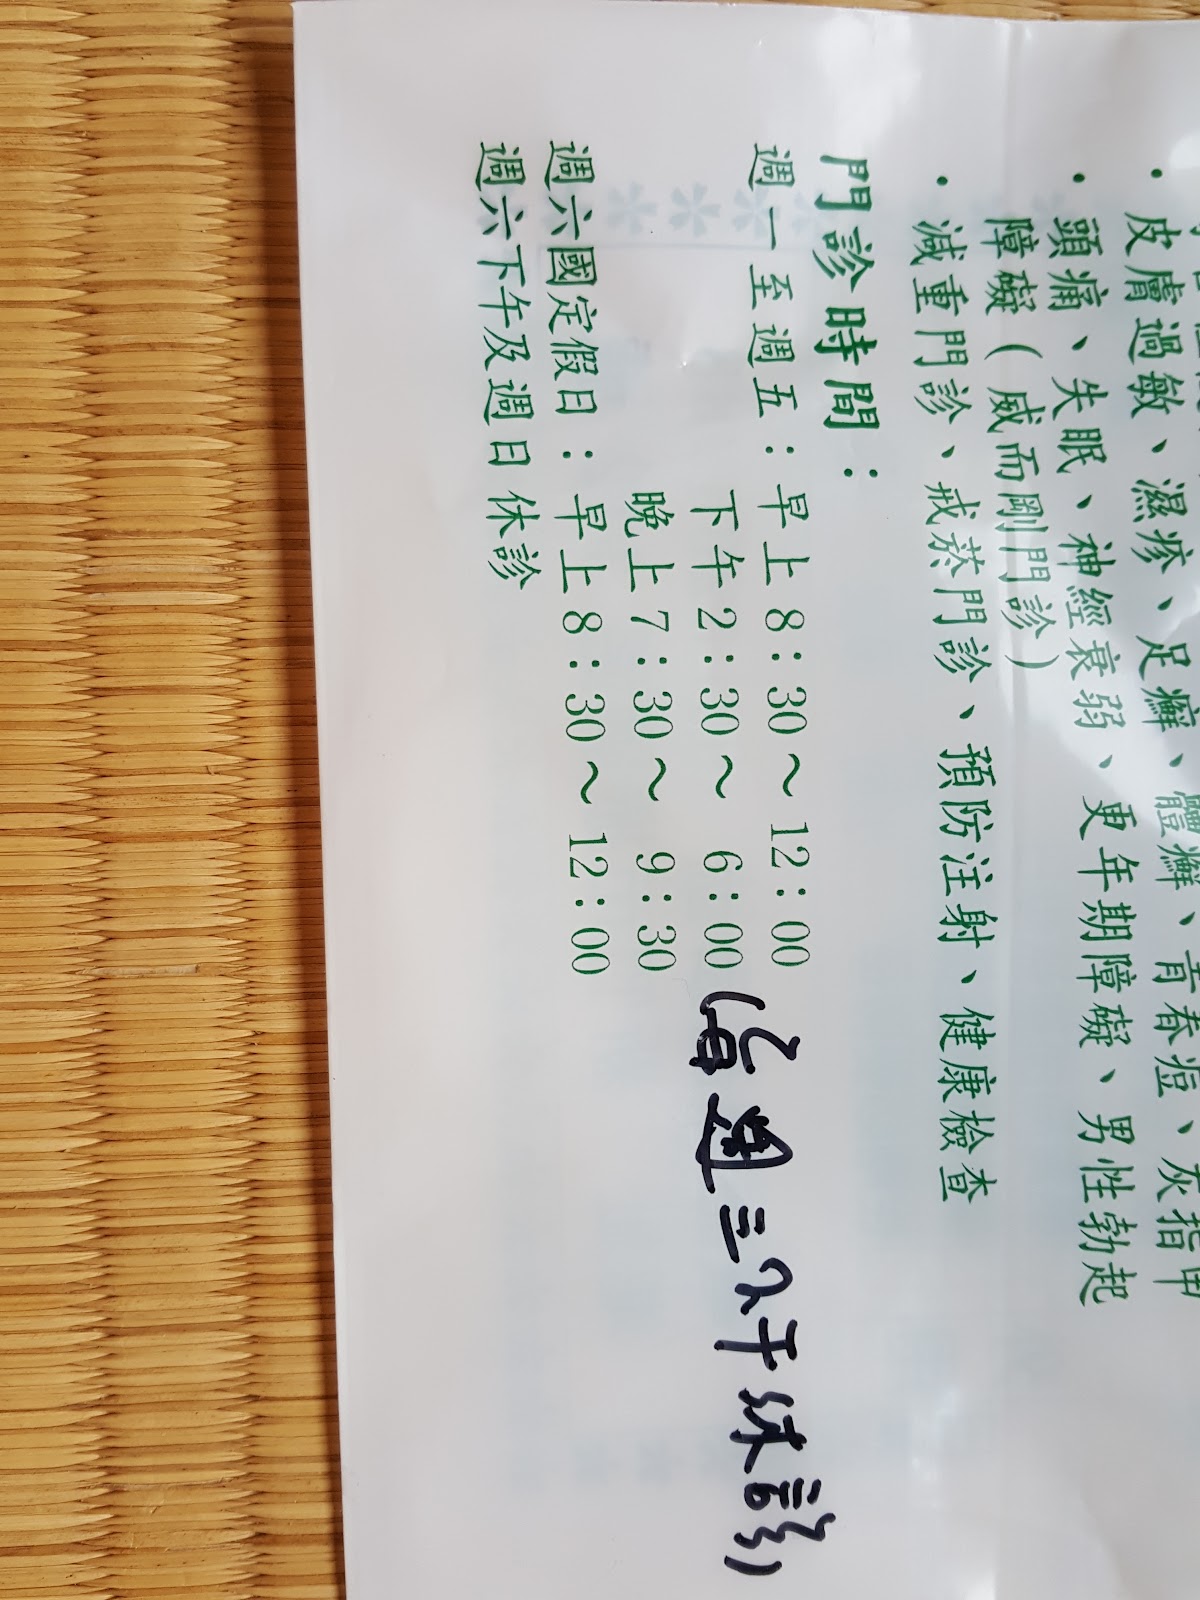 ・皮膚過敏、濕疹、足癬、體癬、青春痘、灰指甲
・頭痛、失眠、神經衰弱、更年期障礙、男性勃起
障礙(威而剛門診)
・減重門診、戒菸門診、預防注射、健康檢查
門診時間:
週一至週五:早上8:30~12:00
下午2:30~ 6:00 (每週三下午休診)
晚上7:30~ 9:30
週六國定假日:早上8:30~12:00
週六下午及週日休診